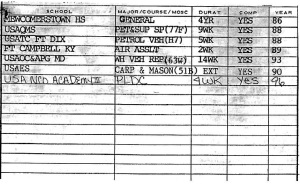 SCHOOL MAJOR/COURSE/MOSC DURAT COMP YEAR
NEWCOMERSTOWN HS GENERAL 4YR YES 86
USAQMS PET&SUP SP(77F) 9WK YES 88
USATC FT DIX PETROL VEH(H7) 5WK YES 88
FT CAMPBELL KY AIR ASSLT 2WK YES 89
USAOC&APG MD WH VEH REP(63W) 14WK YES 93
USAES CARP & MASON(51B) EXT YES 90
USA NCO ACADEMY PLDC 4WK YES 96